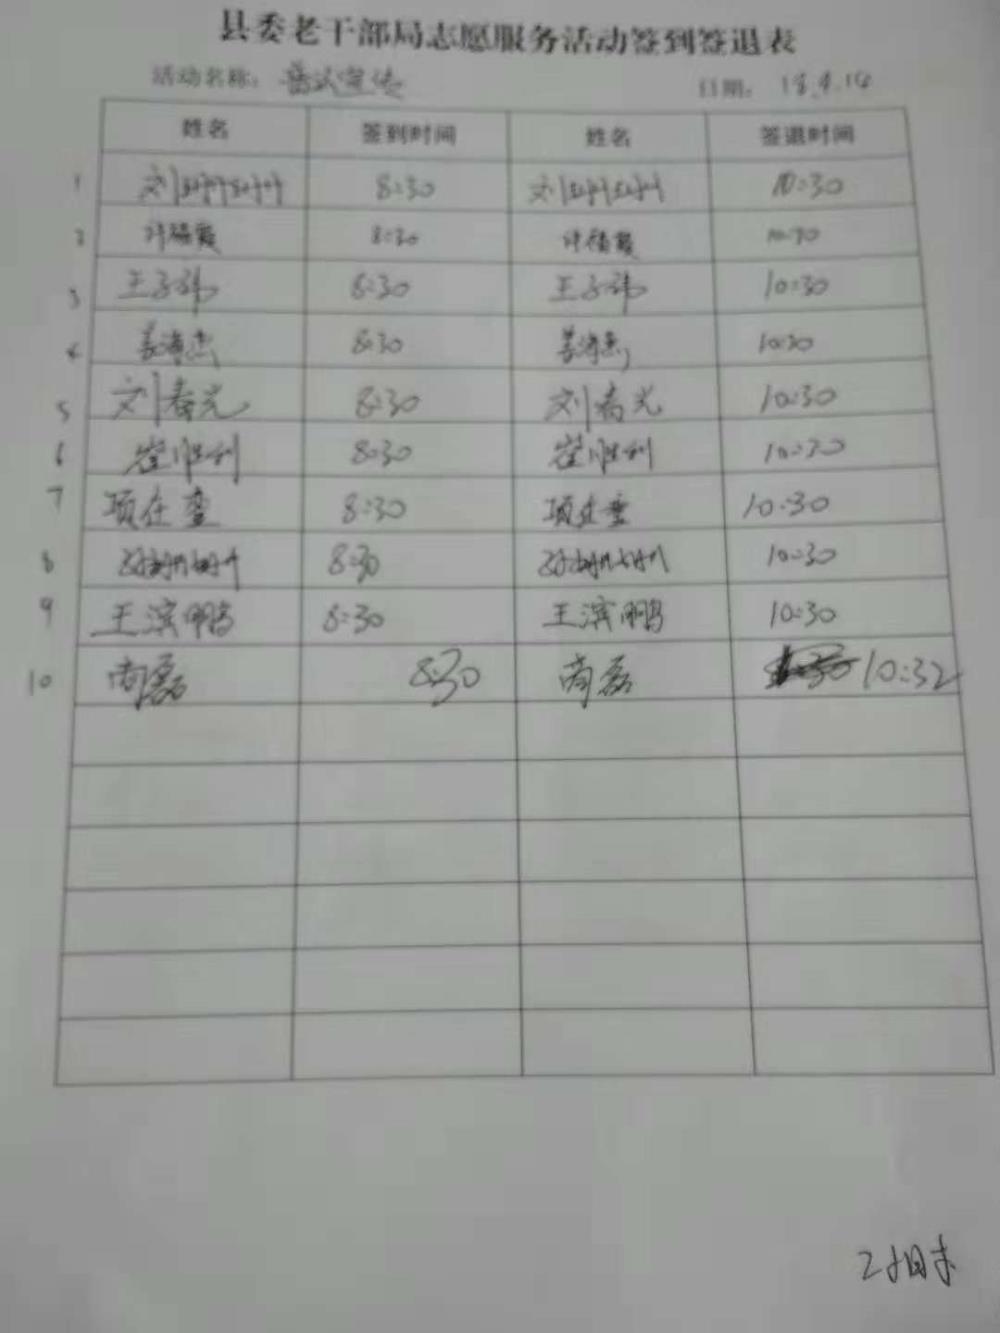 县委老干部局志愿服务活动签到签退表
活动名称： 宣传 日期： 18.4.14
姓名 签到时间 姓名 签退时间
1 刘珊珊 8:30 刘珊珊 10:30
2 8:30 10:30
3 王子玮 8:30 王子玮 10:30
4 姜海杰 8:30 姜海杰 10:30
5 刘春光 8:30 刘春光 10:30
6 崔胜利 8:30 崔胜利 10:30
7 项在奎 8:30 项在奎 10:30
8 8:30 10:30
9 王滨鹏 8:30 王滨鹏 10:30
10 尚磊 8:30 尚磊 10:32